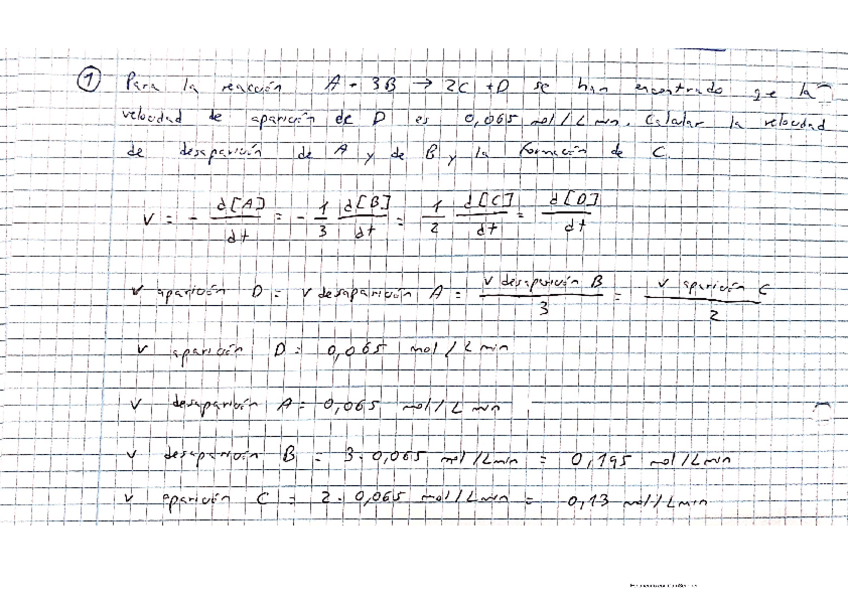 ① Para la reacción A - 3B → 2C + D se han encontrado qe la
velocidad de aparición de D es 0,065 mol/L min. Calcular la velocidad
de desaparición de A y de B y la formación de C.
V = - d[A]/dt = - 1/3 d[B]/dt = 1/2 d[C]/dt = d[D]/dt
v aparición D = v desaparición A = v desaparición B / 3 = v aparición C / 2
v aparición D = 0,065 mol/L min
v desaparición A = 0,065 mol/L min
v desaparición B = 3 · 0,065 mol/L min = 0,195 mol/L min
v aparición C = 2 · 0,065 mol/L min = 0,13 mol/L min